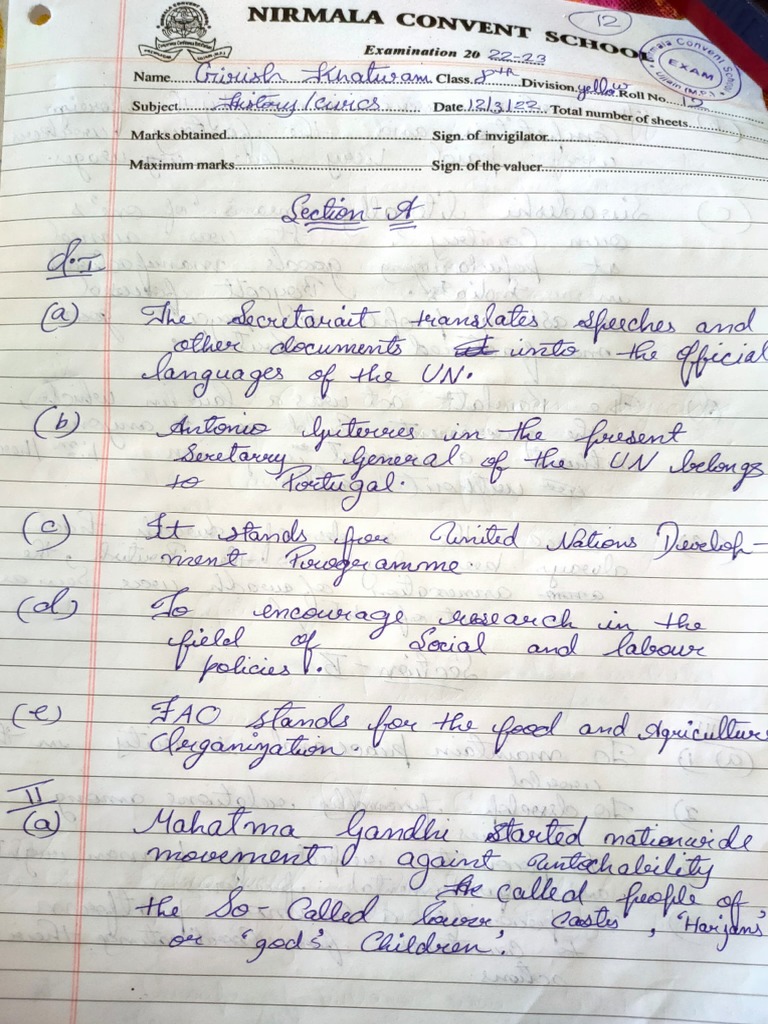 12
NIRMALA CONVENT SCHOOL
Nirmala Convent School
EXAM
Ujjain (M.P.)
Examination 20 22-23
Name.....Girish Khaturam Class.8th Division.yellow Roll No. 12
Subject.....History/civics Date.12/3/22 Total number of sheets.....
Marks obtained..... Sign. of invigilator.....
Maximum marks..... Sign. of the valuer.....
Section - A
Q.I
(a) The Secretarait translates speeches and
other documents into the official
languages of the UN.
(b) Antonio Guterres in the present
Seretarry General of the UN belongs
to Portugal.
(c) It stands for United Nations Develop-
ment Programme.
(d) To encourage research in the
field of Social and labour
policies.
(e) FAO stands for the food and Agriculture
Organization.
II
(a) Mahatma Gandhi started nationwide
movement against untochability
called people of
the So-Called lower castes, 'Harijans'
or 'god's Children'.